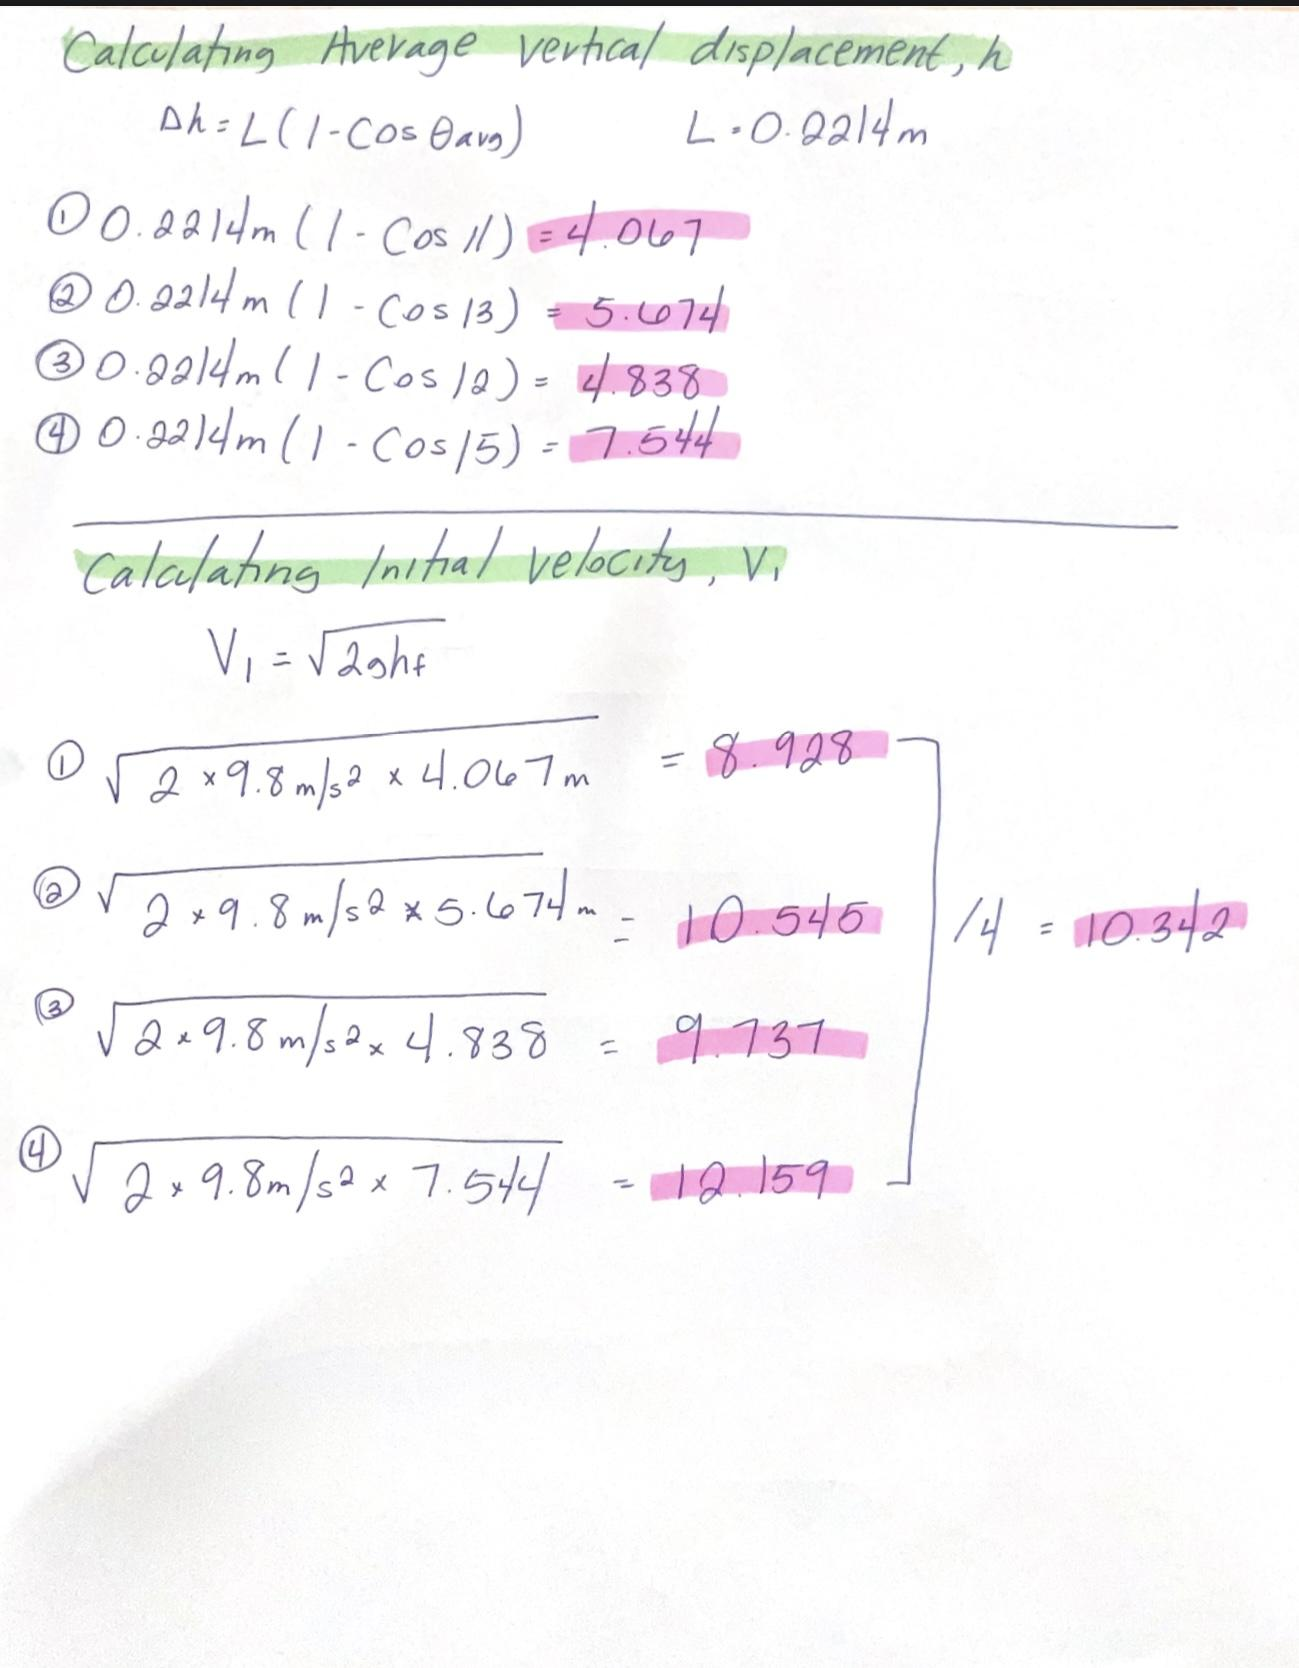 Calculating Average vertical displacement, h
Δh = L(1-Cos θavg) L = 0.2214m
① 0.2214m (1 - Cos 11) = 4.067
② 0.2214m (1 - Cos 13) = 5.674
③ 0.2214m (1 - Cos 12) = 4.838
④ 0.2214m (1 - Cos 15) = 7.544
Calculating Initial velocity, V₁
V₁ = √2ghf
① √2 × 9.8 m/s2 × 4.067 m = 8.928
② √2 × 9.8 m/s2 × 5.674 m = 10.545 /4 = 10.342
③ √2 × 9.8 m/s2 × 4.838 = 9.737
④ √2 × 9.8m/s2 × 7.544 = 12.159